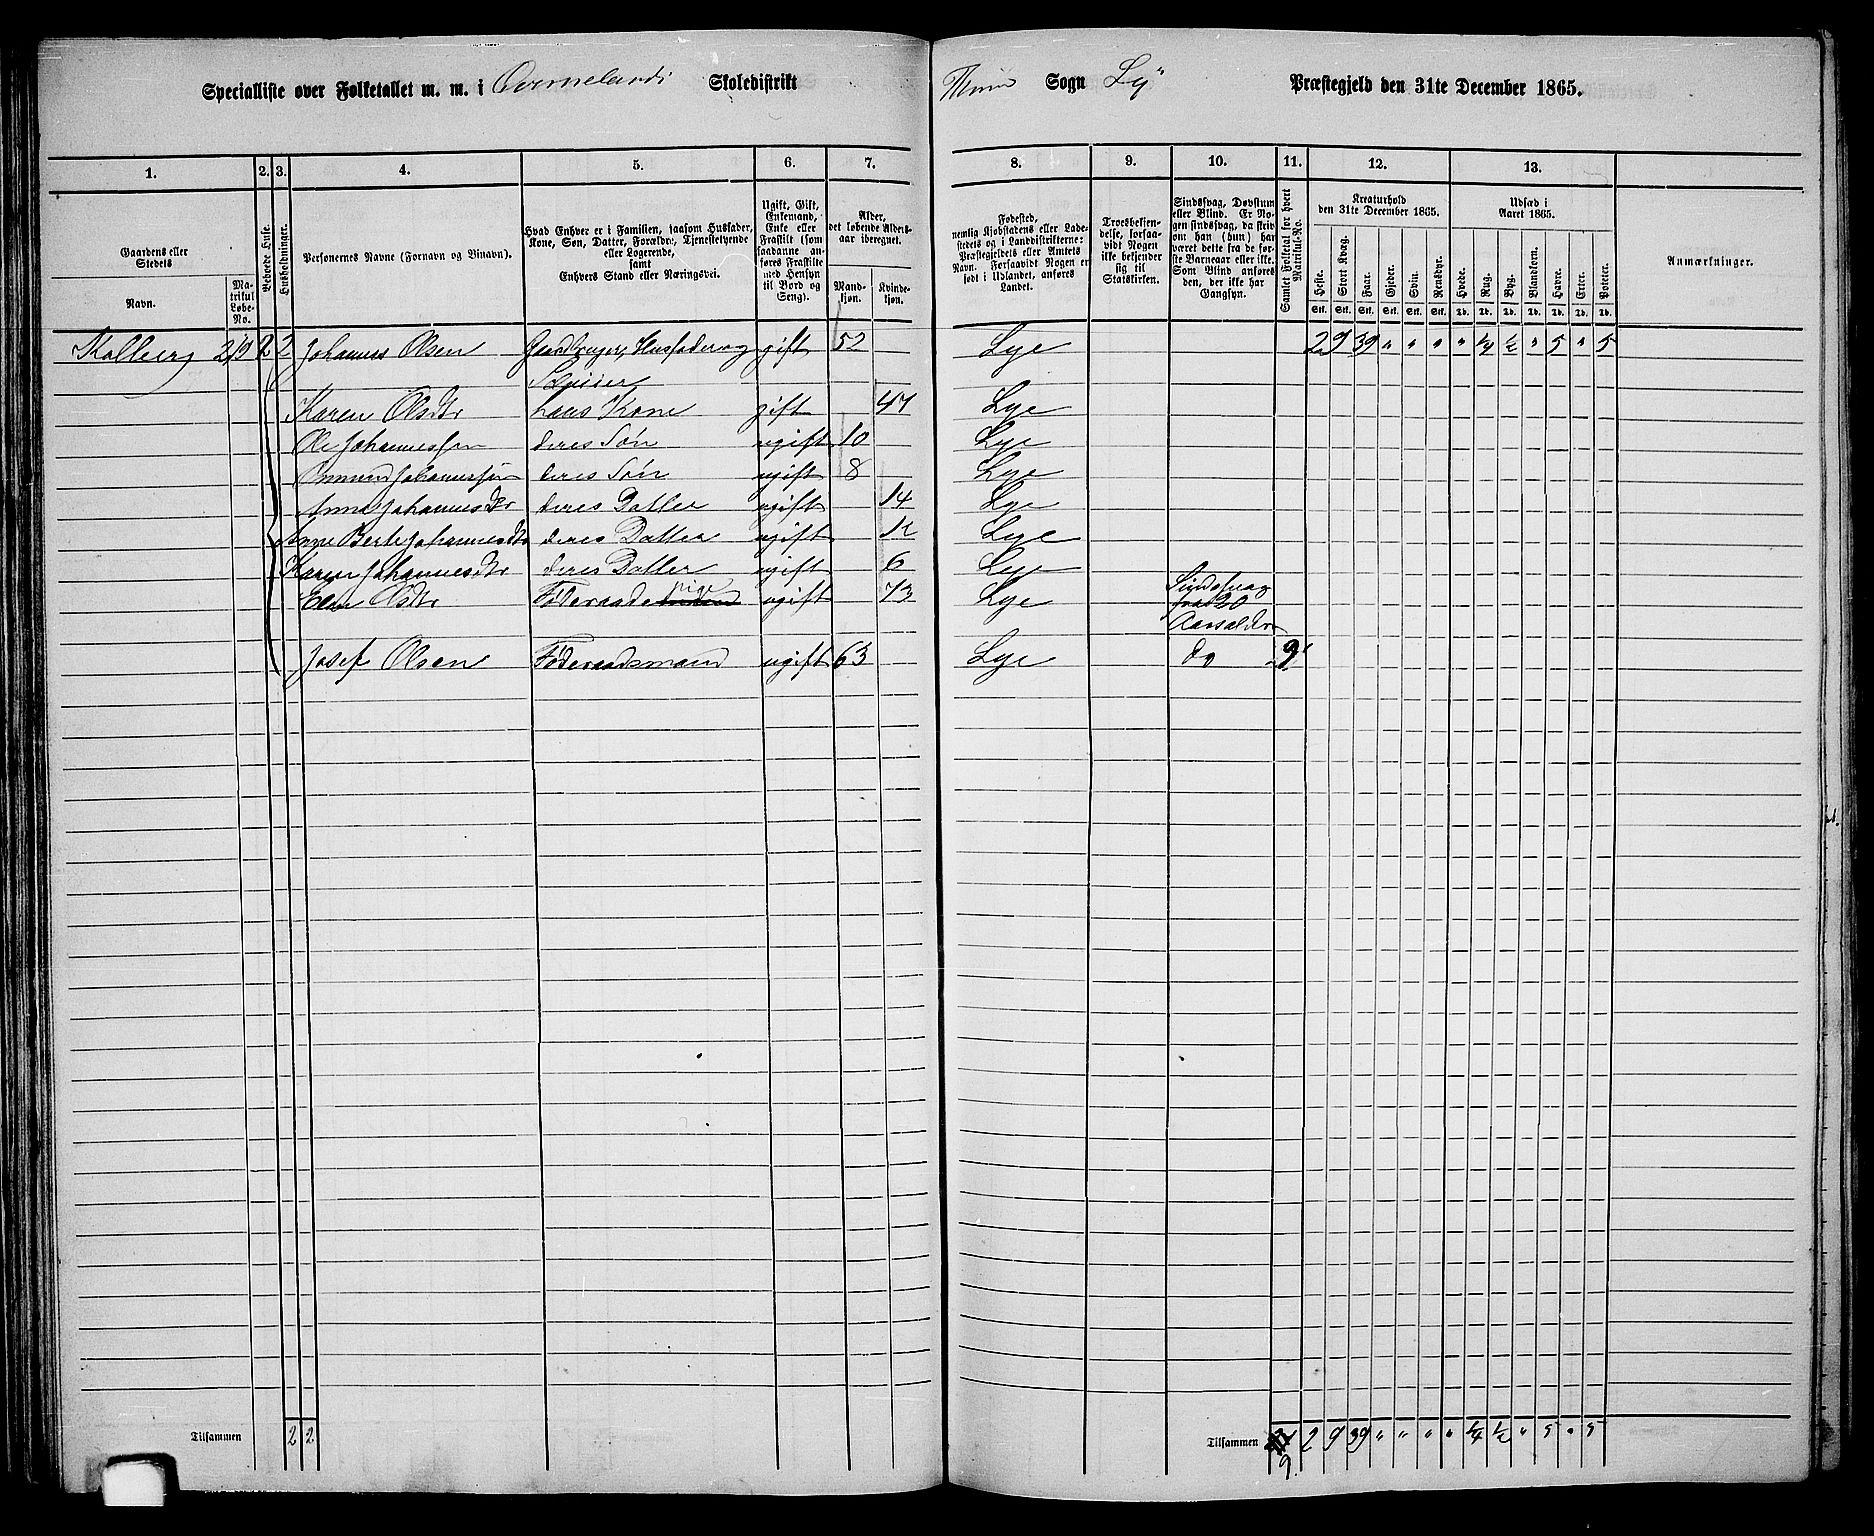 Specialliste over Folketallet m. m. i Skoledistrikt
Sogn Ly Præstegjeld den 31te December 1865.
1. 2. 3. 4. 5. 6. 7. 8. 9. 10. 11. 12. 13.
Gaardens eller Stedets
Navn.
Matrikul Løbe-No.
Beboede Huse.
Husholdninger.
Personernes Navne (Fornavn og Binavn).
Hvad Enhver er i Familien, saasom Husfader, Kone, Søn, Datter, Forældre, Tjenestetyende eller Logerende, samt Enhvers Stand eller Næringsvei.
Ugift, Gift, Enkemand, Enke eller Fraskilt (som saadanne anføres Fraskilte med Hensyn til Bord og Seng).
Alder, det løbende Alders-aar iberegnet.
Mandkjøn.
Kvindekjøn.
Fødested, nemlig Kjøbstadens eller Ladestedets og i Landdistrikterne: Præstegjeldets eller Amtets Navn. Forsaavidt Nogen er født i Udlandet, anføres Landet.
Troesbekjendelse, forsaavidt Nogen ikke bekjender sig til Statskirken.
Sindssvag, Døvstum eller Blind. Er Nogen sindssvag, da skrives om han (hun) har været dette fra de første Barneaar eller ikke. Som Blind anføres den, der ikke har Gangsyn.
Samlet Folketal for hvert Matrikul-No.
Kreaturhold den 31te December 1865.
Heste. Stort Kvæg. Faar. Gjeder. Svin. Rensdyr.
Stk. Stk. Stk. Stk. Stk. Stk.
Udsæd i Aaret 1865.
Hvede. Rug. Byg. Blandkorn. Havre. Erter. Poteter.
Td. Td. Td. Td. Td. Td. Td.
Anmærkninger.
Kalberg 219 2 2 Johannes Olsen Gaardbruger, Husfader og gift 52 Lye 2 9 39 " " " " 1/4 1/2 " 5 " 5
Karen Olsdtr hans Kone gift 47 Lye
Ole Johannessen deres Søn ugift 10 Lye
Ommund Johannessen deres Søn ugift 8 Lye
Anna Johannesdtr deres Datter ugift 14 Lye
Anne Berte Johannesdtr deres Datter ugift 12 Lye
Karen Johannesdtr deres Datter ugift 6 Lye
Elen Olsdtr Føderaadspige ugift 73 Lye Sindssvag
fra 20
Aarsalder
Josef Olsen Føderaadsmand ugift 63 Lye do 9
Tilsammen 2 2
Tilsammen 2 9 39 " " " " 1/4 1/2 " 5 " 5
9